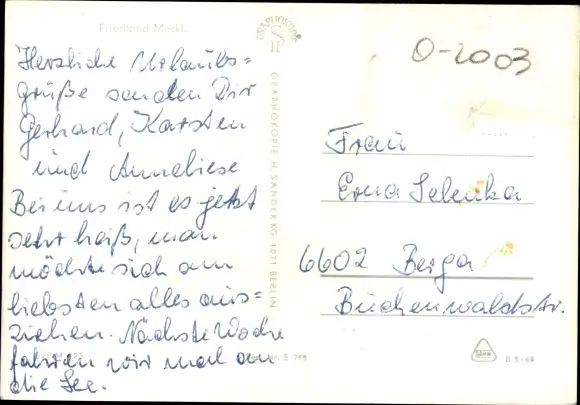 Friedland Meckl.
Herzliche Urlaubs=
grüße senden Dir
Gerhard, Karsten
und Anneliese
Bei uns ist es jetzt
sehr heiß, man
möchte sich am
liebsten alles aus=
ziehen. Nächste Woche
fahren wir mal an
die See.
GRAPHOKOPIE H. SANDER KG 1071 BERLIN
E 768
0-2003
Frau
Erna Selenka
6602 Berga
Buchenwaldstr.
B 8/69